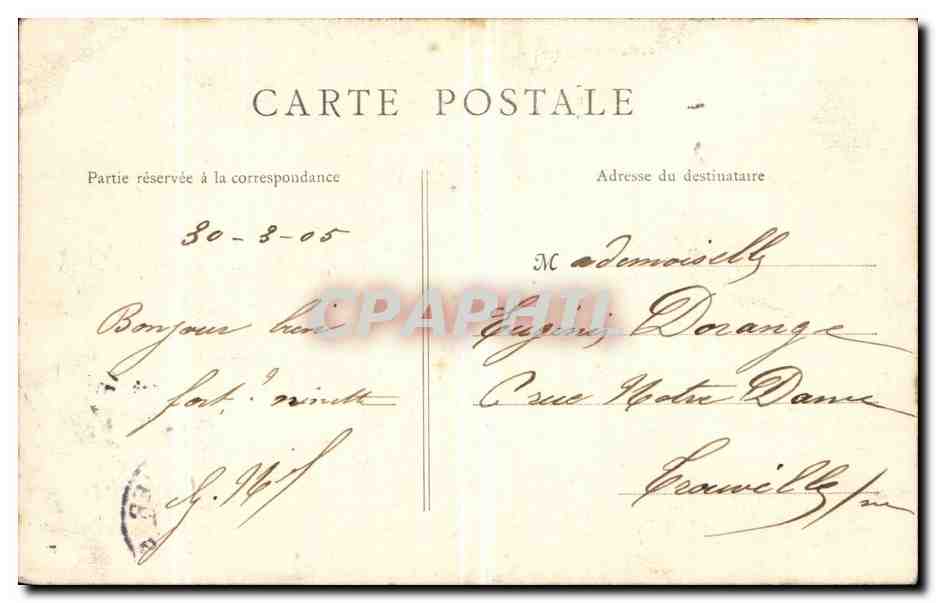 CARTE POSTALE
Partie réservée à la correspondance
Adresse du destinataire
30-3-05
Mademoiselle
Bonjour bien
Eugénie Dorange
fort
rue Notre Dame
Trouville s/
CPAPHIL